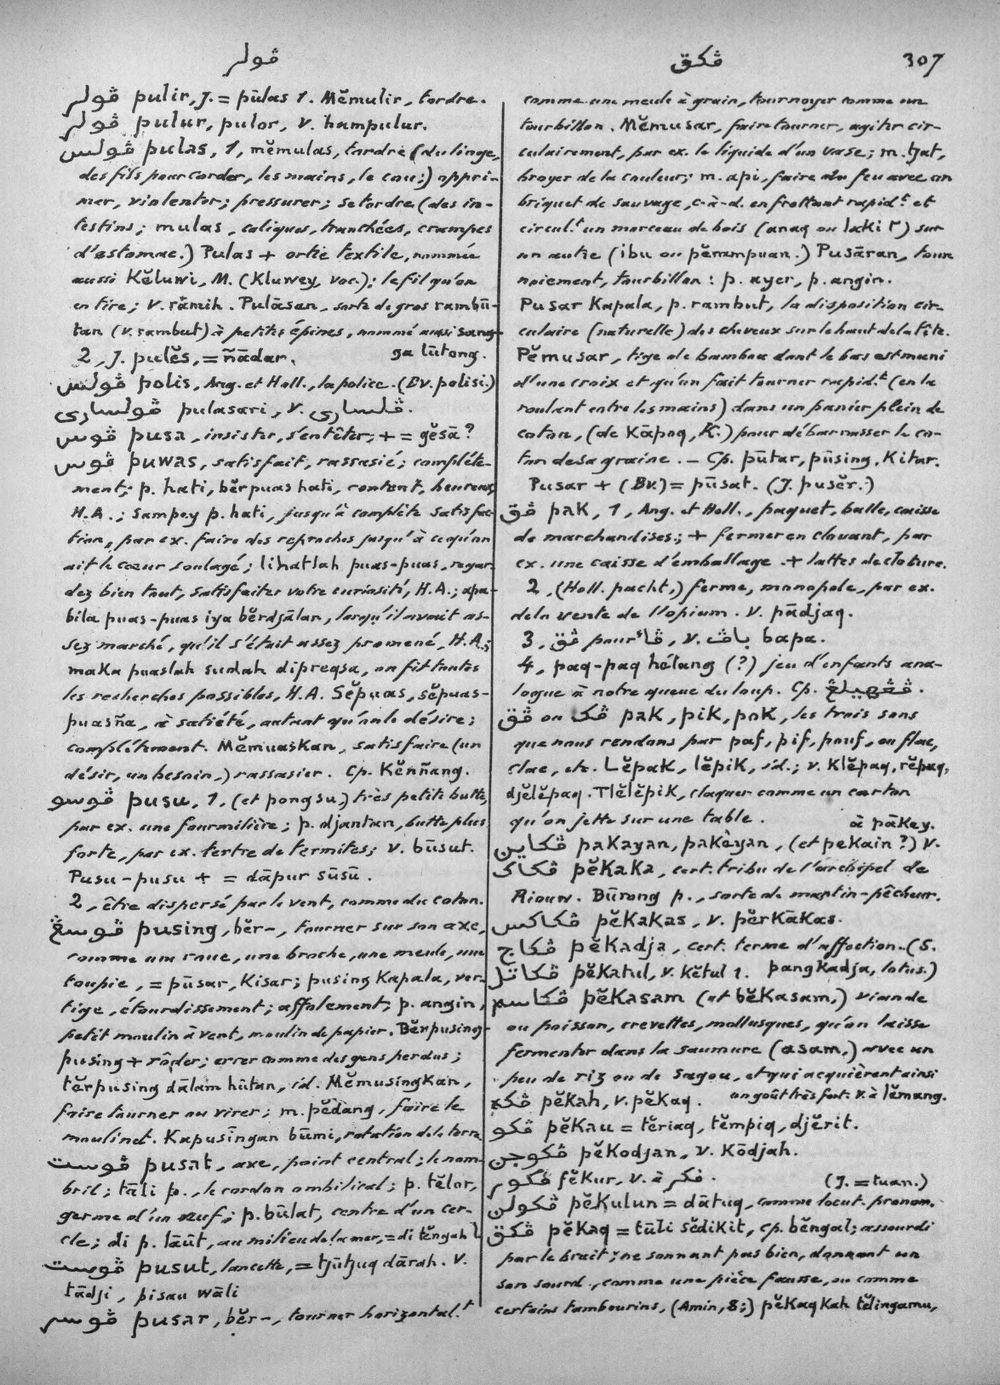 ڤولر
ڤکق
307
ڤولر pulir, J. = pūlas 1. Mĕmulir, tordre.
ڤولر pulur, pulor, v. hampulur.
ڤولس pulas, 1, mĕmulas, tordre (du linge,
des fils pour corder, les mains, le cou;) oppri-
mer, violenter; pressurer; se tordre (des in-
testins; mulas, coliques, tranchées, crampes
d'estomac.) Pulas + ortie textile, nommée
aussi Kĕluwi, M. (Kluwey, voc.); le fil qu'on
en tire; v. rāmih. Pulāsan, sorte de gros rambū-
tan (v. rambut) à petites épines, nommé aussi sang-
ga lūtong.
2, J. pulĕs, = ñādar.
ڤولس polis, Ang. et Holl., la police. (Bv. polisi.)
ڤولساري pulasari, v. ڤلساري.
ڤوس pusa, insister, s'entêter; + = gĕsā?
ڤوس puwas, satisfait, rassasié; complète-
ment; p. hati, bĕrpuas hati, content, heureux,
H.A.; sampey p. hati, jusqu'à complète satisfac-
tion, par ex. faire des reproches jusqu'à ce qu'on
ait le cœur soulagé; lihatlah puas-puas, regar-
dez bien tout, satisfaites votre curiosité, H.A.; apa-
bila puas-puas iya bĕrdjālan, lorsqu'il avait as-
sez marché, qu'il s'était assez promené, H.A.;
maka puaslah sudah dipreqsa, on fit toutes
les recherches possibles, H.A. Sĕpuas, sĕpuas-
puasña, à satiété, autant qu'on le désire;
complètement. Mĕmuaskan, satisfaire (un
désir, un besoin,) rassasier. Cp. Kĕnñang.
ڤوسو pusu, 1, (et pongsu) très petite butte,
par ex. une fourmilière; p. djantan, butte plus
forte, par ex. tertre de termites; v. būsut.
Pusu-pusu + = dāpur sūsū.
2, être dispersé par le vent, comme du coton.
ڤوسڠ pusing, bĕr-, tourner sur son axe,
comme une roue, une broche, une meule, une
toupie, = pūsar, Kisar; pusing Kapala, ver-
tige, étourdissement; affolement; p. angin,
petit moulin à vent, moulin de papier. Bĕrpusing-
pusing + rôder; errer comme des gens perdus;
tĕrpusing dālam hūtan, id. Mĕmusingkan,
faire tourner ou virer; m. pĕdang, faire le
moulinet. Kapusīngan būmi, rotation de la terre
ڤوست pusat, axe, point central; le nom-
bril; tāli p., le cordon ombilical; p. tĕlor,
germe d'un œuf; p. būlat, centre d'un cer-
cle; di p. lāūt, au milieu de la mer, = di tĕngah l.
ڤوست pusut, lancette, = tjūtjuq dārah. v.
tādji, pisau wāli
ڤوسر pusar, bĕr-, tourner horizontal.t
comme une meule à grain, tournoyer comme un
tourbillon. Mĕmusar, faire tourner, agiter cir-
culairement, par ex. le liquide d'un vase; m. tjat,
broyer de la couleur; m. api, faire du feu avec un
briquet de sauvage, c-à-d. en frottant rapid.t et
circul.t un morceau de bois (anaq ou laki ٢) sur
un autre (ibu ou pĕrampuan.) Pusāran, tour-
noiement, tourbillon: p. ayer, p. angin.
Pusar Kapala, p. rambut, la disposition cir-
culaire (naturelle) des cheveux sur le haut de la tête.
Pĕmusar, tige de bambou dont le bas est muni
d'une croix et qu'on fait tourner rapid.t (en la
roulant entre les mains) dans un panier plein de
coton, (de Kāpoq, K.) pour débarrasser le co-
ton de sa graine. — Cp. pūtar, pūsing, Kitar.
Pusar + (Bv.) = pūsat. (J. pusĕr.)
ڤق pak, 1, Ang. et Holl., paquet, balle, caisse
de marchandises; + fermer en clouant, par
ex. une caisse d'emballage. + lattes de clôture.
2, (Holl. pacht,) ferme, monopole, par ex.
de la vente de l'opium. v. pādjaq.
3, ڤق pour ڤاء, v. باڤ bapa.
4, paq-paq hélang (?) jeu d'enfants ana-
logue à notre queue du loup. Cp. ڤڠهيلڠ.
ڤق ou ڤک pak, pik, pok, les trois sons
que nous rendons par paf, pif, pouf, ou flac,
clac, etc. Lĕpak, lĕpik, id.; v. Klĕpaq, rĕpaq,
djĕlĕpaq. Tlĕlĕpik, claquer comme un carton
qu'on jette sur une table.
à pākey.
ڤکاين pakayan, pakèyan, (et pekain?) v.
ڤکاک pĕkaka, cert. tribu de l'archipel de
Riouw. Būrong p., sorte de martin-pêcheur.
ڤکاکس pĕkakas, v. pĕrkākas.
ڤکاج pĕkadja, cert. terme d'affection. (S.
pangkadja, lotus.)
ڤکاتل pĕkatul, v. kĕtul 1.
ڤکاسم pĕkasam (et bĕkasam,) viande
ou poisson, crevettes, mollusques, qu'on laisse
fermenter dans la saumure (asam,) avec un
peu de riz ou de sagou, et qui acquièrent ainsi
un goût très fort. v. à lĕmang.
ڤکه pĕkah, v. pĕkaq.
ڤکو pĕkau = tĕriaq, tĕmpiq, djĕrit.
ڤکوجن pĕkodjan, v. Kōdjah.
ڤکور fĕkur, v. à فکر.
(J. = tuan.)
ڤکولن pĕkulun = dātuq, comme locut. pronom.
ڤکق pĕkaq = tūli sĕdikit, cp. bĕngal; assourdi
par le bruit; ne sonnant pas bien, donnant un
son sourd, comme une pièce fausse, ou comme
certains tambourins, (Amin, 8;) pĕkaqkah tĕlingamu,